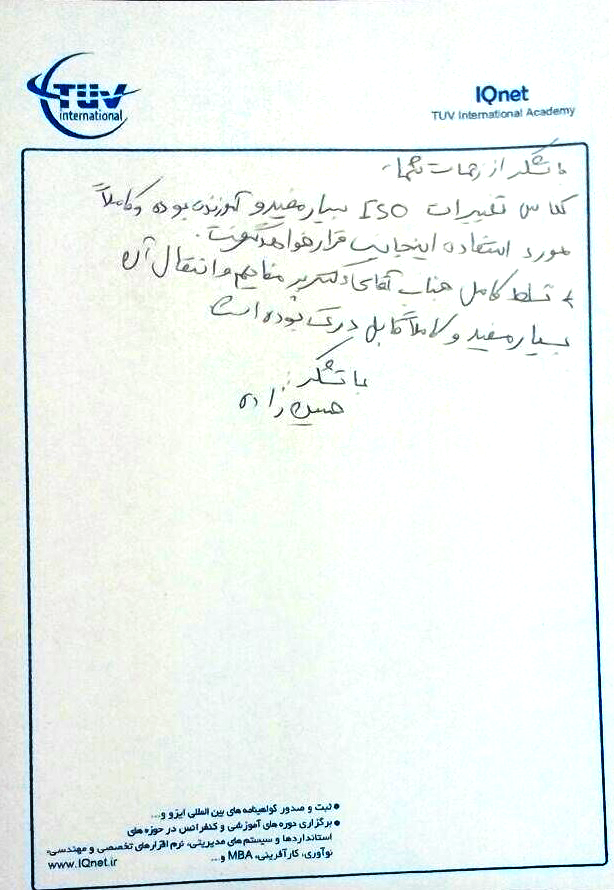 TÜV
international
IQnet
TUV International Academy
با تشکر از زحمات شما.
کلاس تغییرات ISO بسیار مفید و آموزنده بوده و کاملاً
مورد استفاده اینجانب قرار خواهد گرفت.
* تسلط کامل جناب آقای دکتر بر مفاهیم و انتقال آن
بسیار مفید و کاملاً قابل درک بوده است
با تشکر:
حسین زاده
● ثبت و صدور گواهینامه های بین المللی ایزو و...
● برگزاری دوره های آموزشی و کنفرانس در حوزه های
استانداردها و سیستم های مدیریتی، نرم افزارهای تخصصی و مهندسی،
نوآوری، کارآفرینی، MBA و...
www.IQnet.ir